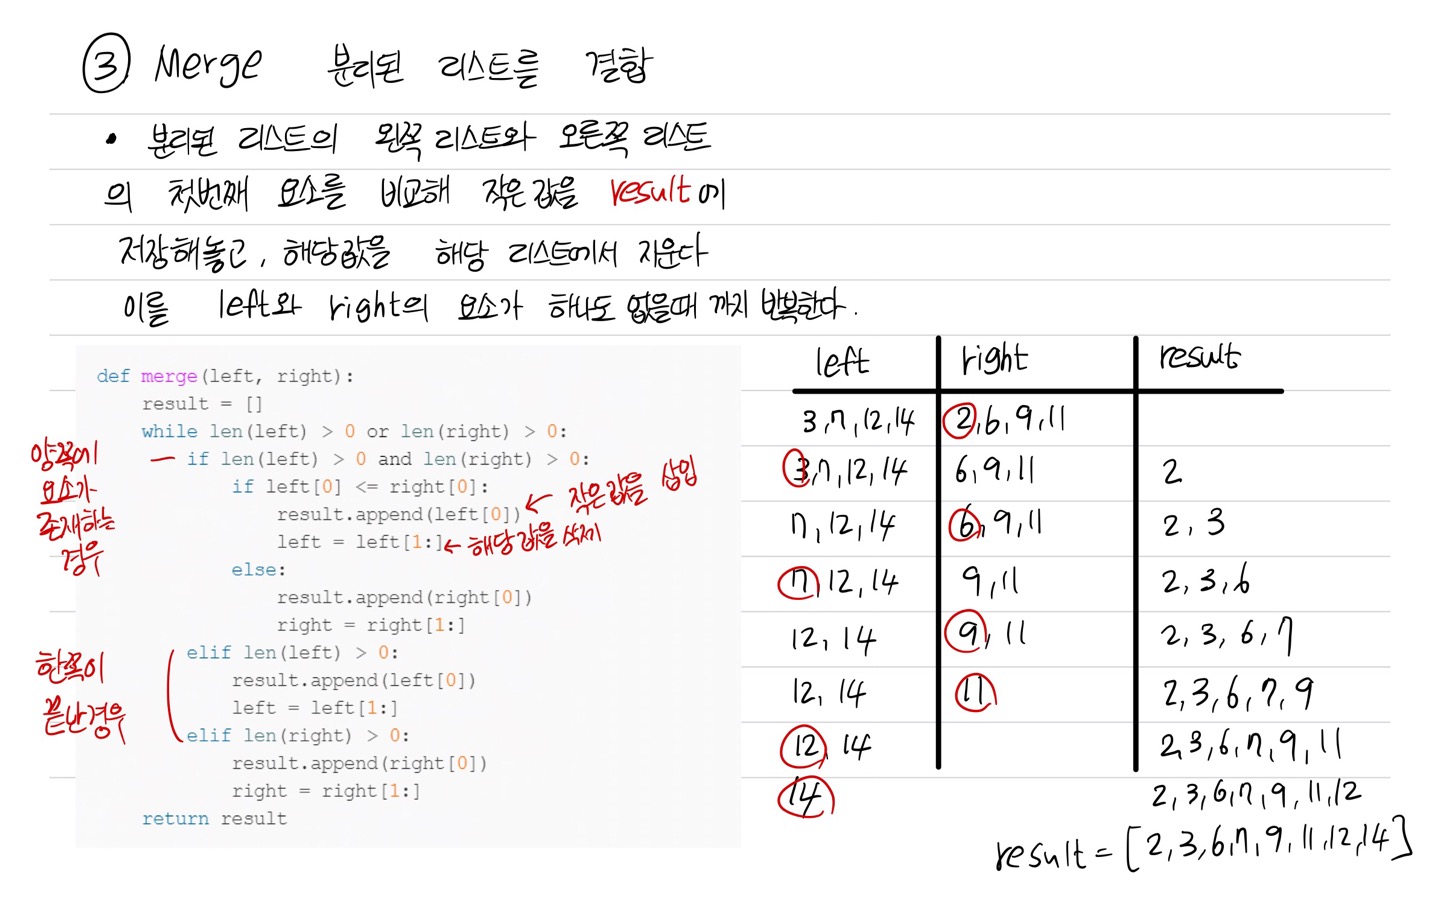 ③ Merge 분리된 리스트를 결합
• 분리된 리스트의 왼쪽 리스트와 오른쪽 리스트
의 첫번째 요소를 비교해 작은 값을 result에
저장해놓고, 해당값을 해당 리스트에서 지운다
이를 left와 right의 요소가 하나도 없을때 까지 반복한다.
def merge(left, right):
result = []
while len(left) > 0 or len(right) > 0:
if len(left) > 0 and len(right) > 0:
if left[0] <= right[0]:
result.append(left[0])
left = left[1:]
else:
result.append(right[0])
right = right[1:]
elif len(left) > 0:
result.append(left[0])
left = left[1:]
elif len(right) > 0:
result.append(right[0])
right = right[1:]
return result
양쪽에
요소가
존재하는
경우
← 작은값을 삽입
← 해당값을 삭제
한쪽이
끝난경우
left right result
3,7,12,14 2,6,9,11
3,7,12,14 6,9,11 2
7,12,14 6,9,11 2,3
7,12,14 9,11 2,3,6
12,14 9,11 2,3,6,7
12,14 11 2,3,6,7,9
12,14 2,3,6,7,9,11
14 2,3,6,7,9,11,12
result = [2,3,6,7,9,11,12,14]